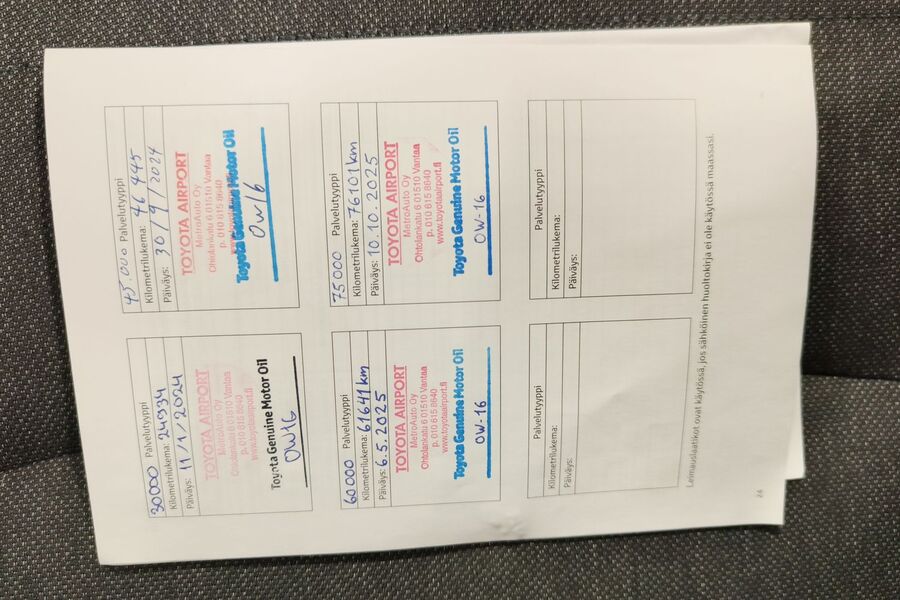 30000 Palvelutyyppi
Kilometrilukema: 24934
Päiväys: 11/1/2024
TOYOTA AIRPORT
MetroAuto Oy
Ohtolankatu 6 01510 Vantaa
p. 010 615 8640
www.toyotaairport.fi
Toyota Genuine Motor Oil
0W16
45,000 Palvelutyyppi
Kilometrilukema: 46 445
Päiväys: 30/9/2024
TOYOTA AIRPORT
MetroAuto Oy
Ohtolankatu 6 01510 Vantaa
p. 010 615 8640
Toyota Genuine Motor Oil
0W16
60000 Palvelutyyppi
Kilometrilukema: 61641 km
Päiväys: 6.5.2025
TOYOTA AIRPORT
MetroAuto Oy
Ohtolankatu 6 01510 Vantaa
p. 010 615 8640
www.toyotaairport.fi
Toyota Genuine Motor Oil
0W-16
75000 Palvelutyyppi
Kilometrilukema: 76101 km
Päiväys: 10.10.2025
TOYOTA AIRPORT
MetroAuto Oy
Ohtolankatu 6 01510 Vantaa
p. 010 615 8640
www.toyotaairport.fi
Toyota Genuine Motor Oil
0W-16
Palvelutyyppi
Kilometrilukema:
Päiväys:
Palvelutyyppi
Kilometrilukema:
Päiväys:
Leimauslaatikot ovat käytössä, jos sähköinen huoltokirja ei ole käytössä maassasi.
24